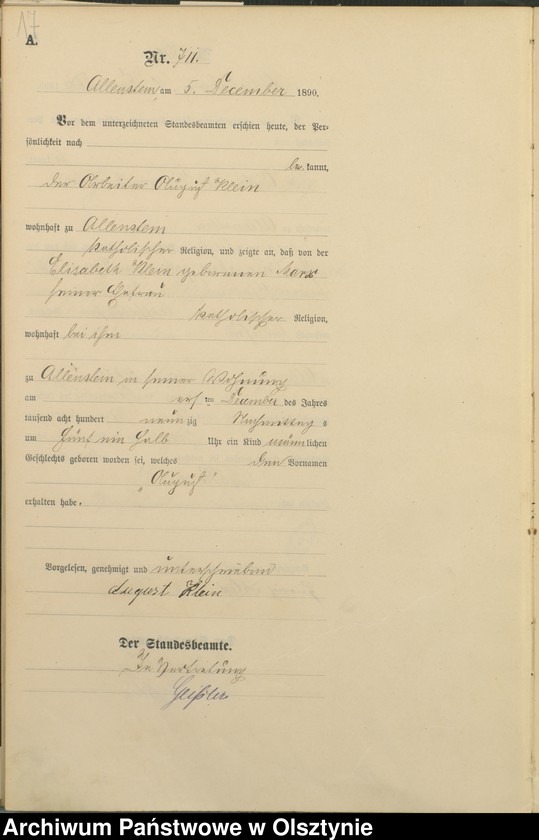 17
A.
Nr. 711.
Allenstein am 5. December 1890.
Vor dem unterzeichneten Standesbeamten erschien heute, der Per-
sönlichkeit nach
be kannt,
der Arbeiter August Klein
wohnhaft zu Allenstein
katholischer Religion, und zeigte an, daß von der
Elisabeth Klein geborenen Marx
seiner Ehefrau
katholischer Religion,
wohnhaft bei ihm
zu Allenstein in seiner Wohnung
am ersten December des Jahres
tausend acht hundert neun zig Nachmittags
um fünf ein halb Uhr ein Kind männlichen
Geschlechts geboren worden sei, welches den Vornamen
„August“
erhalten habe.
Vorgelesen, genehmigt und unterschrieben
August Klein
Der Standesbeamte.
In Vertretung
Archiwum Państwowe w Olsztynie